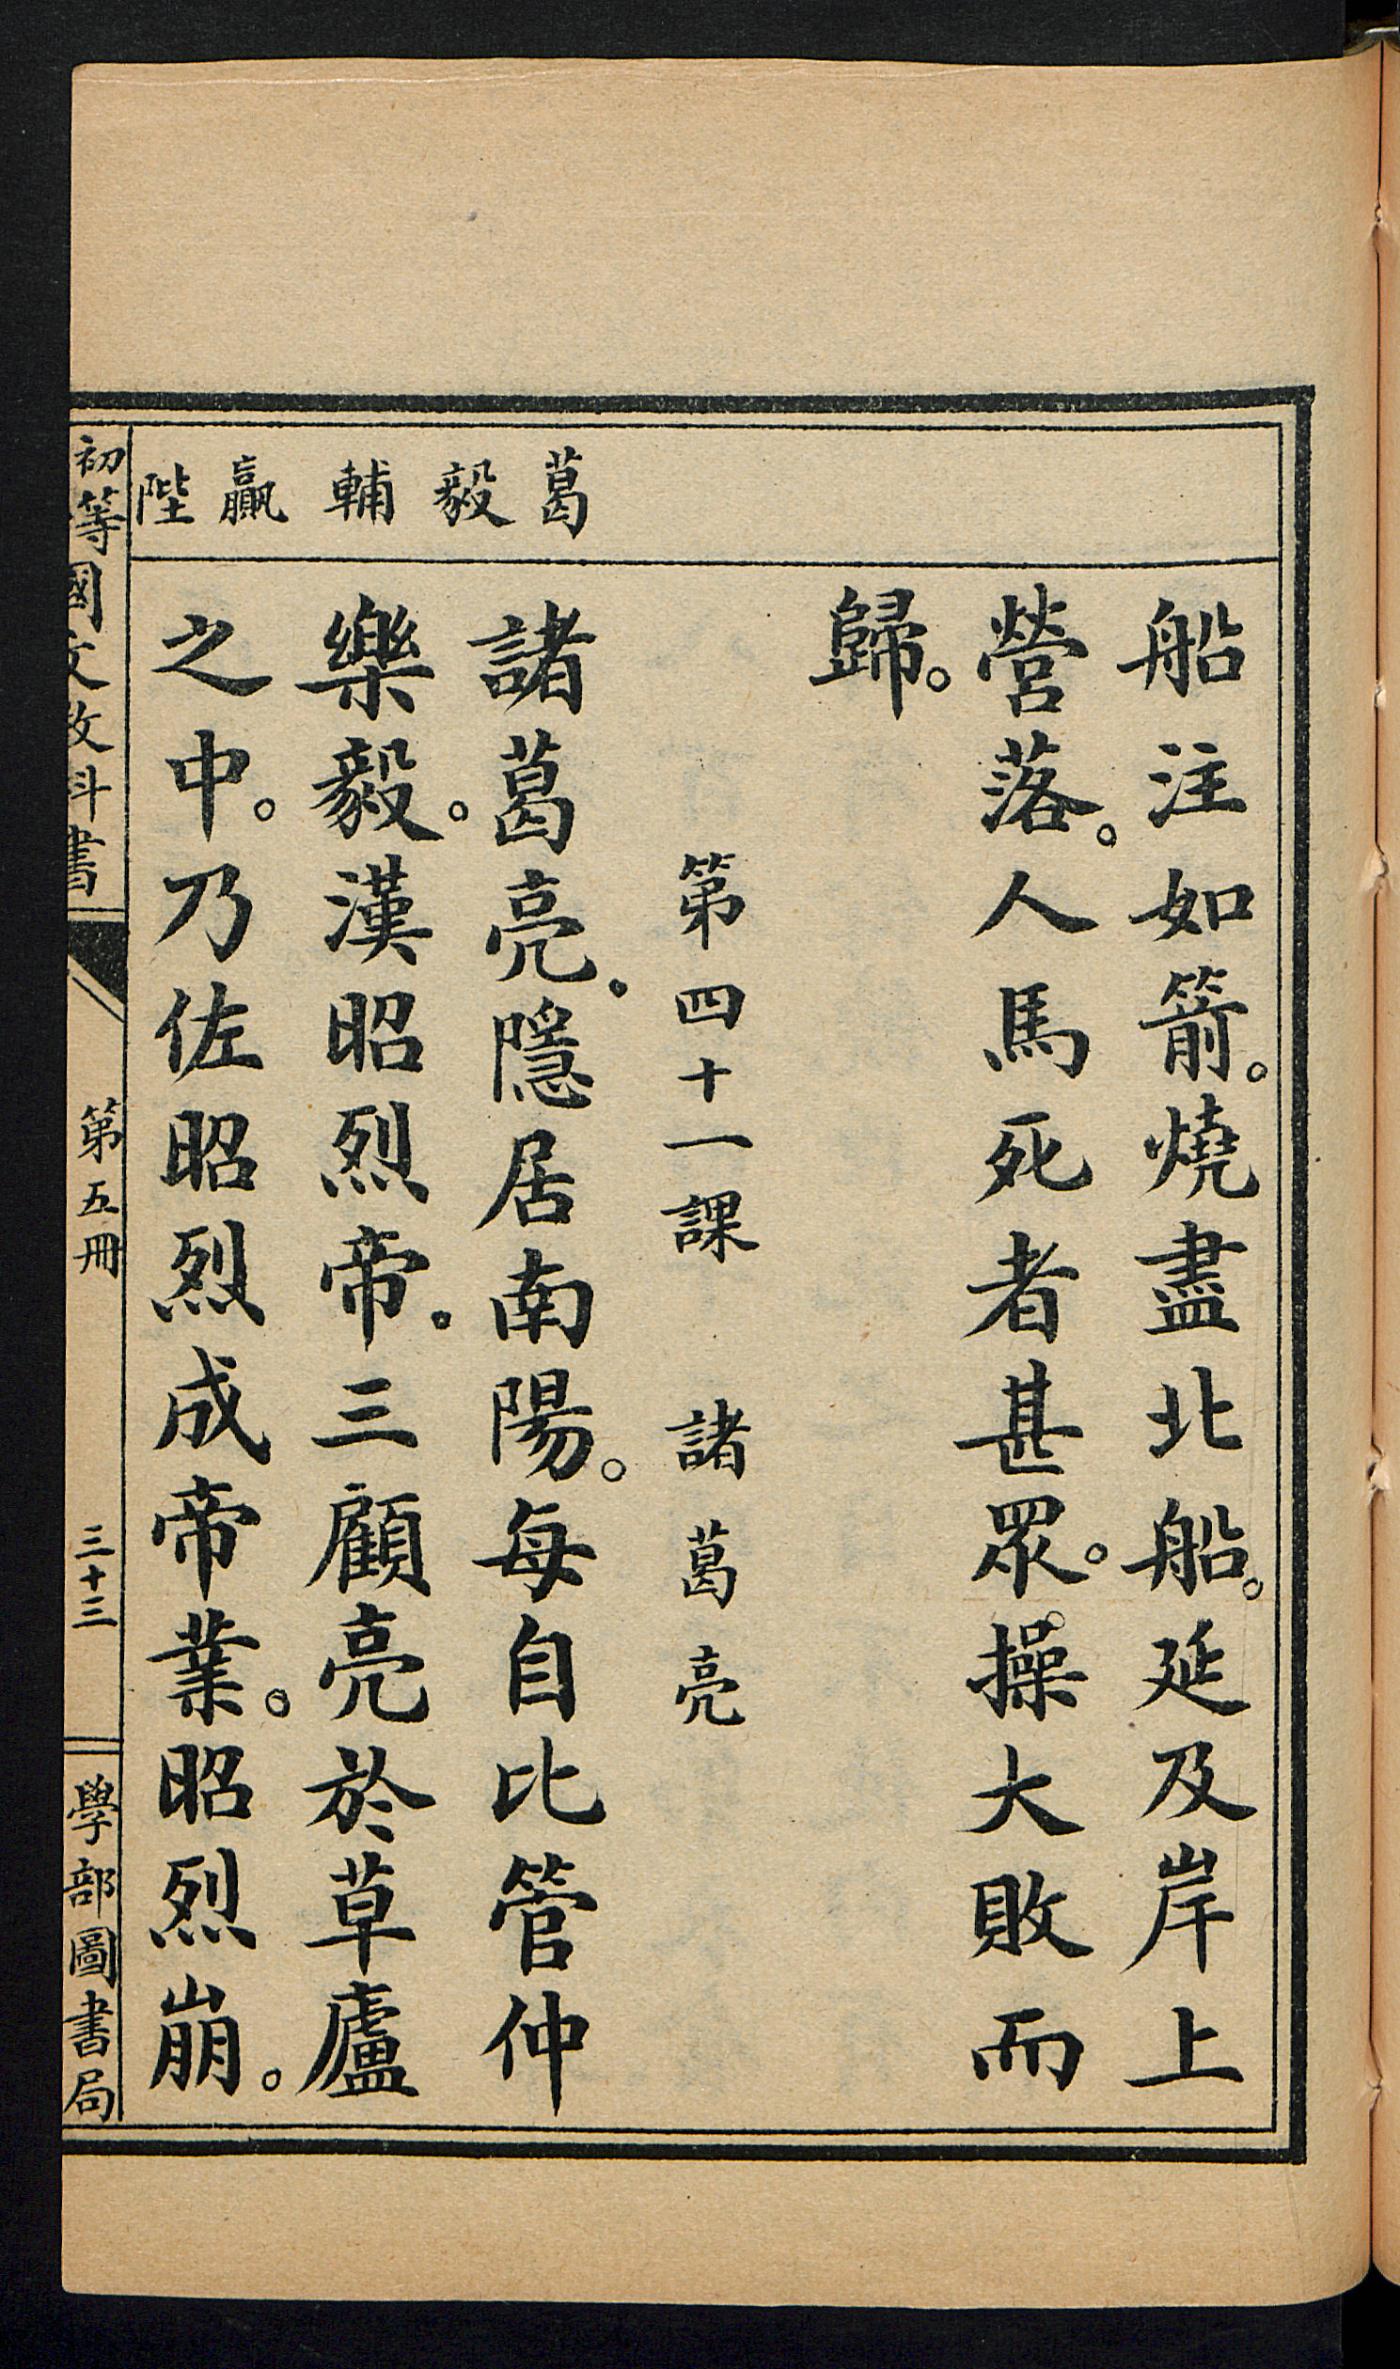 船注如箭。燒盡北船。延及岸上
營落。人馬死者甚眾。操大敗而
歸。
第四十一課　諸葛亮
葛毅輔贏陛
諸葛亮．隱居南陽。每自比管仲
樂毅。漢昭烈帝．三顧亮於草廬
之中。乃佐昭烈成帝業。昭烈崩。
初等國文教科書　第五冊　三十三　學部圖書局